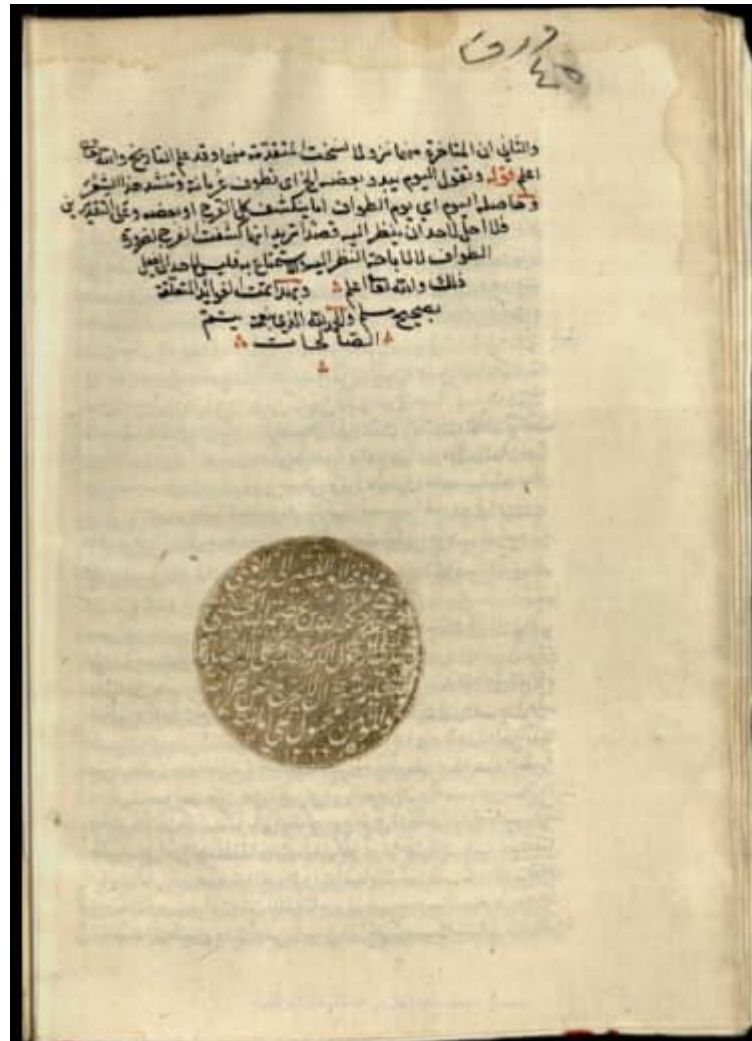 ورق
٤٥
والثاني ان المتاخرة منهما نزولا نسخت المتقدمة منهما وقد علم التاريخ والله تعالى
اعلم قوله وتقول اليوم يبدو بعضه الخ اي تطوف عريانة وتنشد هذا الشعر
وحاصله اليوم اي يوم الطواف اما ينكشف كل الفرج او بعضه وعلى التقديرين
فلا احل لاحد ان ينظر اليه قصدا تريد انها كشفت الفرج لضرورة
الطواف لا لاباحة النظر اليه والاستمتاع به فليس لاحد ان يفعل
ذلك والله تعالى اعلم وبهذا تمت الفوايد المتعلقة
بصحيح مسلم والحمد لله الذي بنعمته يتم
الصالحات